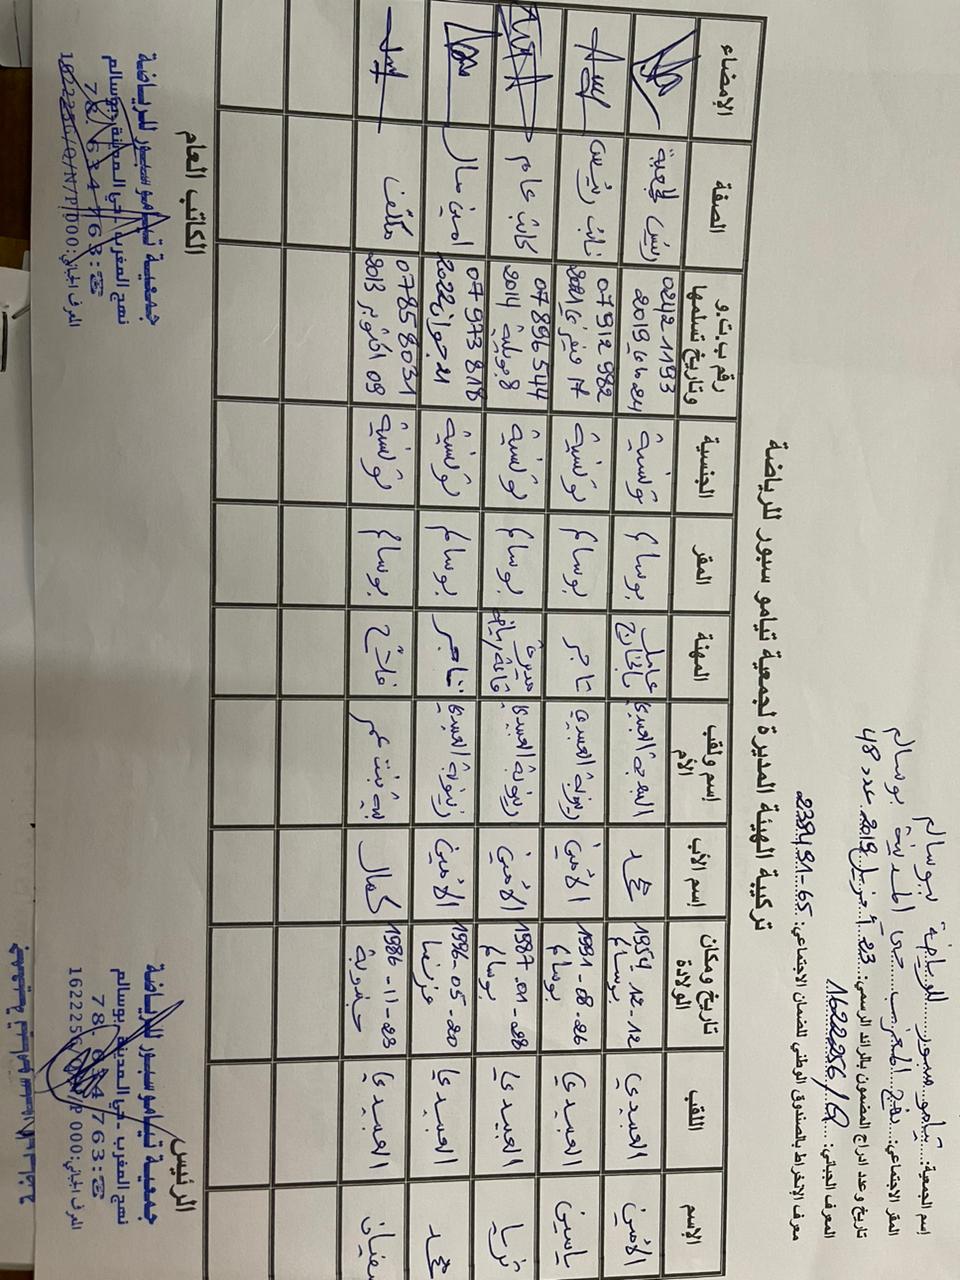 اسم الجمعية: تيامو سبور للرياضة بوسالم
المقر الاجتماعي: نهج المغرب حي المدينة بوسالم
تاريخ وعدد ادراج المضمون بالرائد الرسمي: 23 أفريل 2019 عدد 48
المعرف الجبائي: 1622256/Q
معرف الإنخراط بالصندوق الوطني للضمان الاجتماعي: 238491-65
تركيبة الهيئة المديرة لجمعية تيامو سبور للرياضة
الإسم اللقب تاريخ ومكان الولادة إسم الأب إسم ولقب الأم المهنة المقر الجنسية رقم ب.ت.و وتاريخ تسلمها الصفة الإمضاء
الأمين العبيدي 1959-12-12 بوسالم محمد العبيدي عامل بالخارج بوسالم تونسية 02421193 2019 رئيس الجمعية
ياسين العبيدي 1991-08-26 بوسالم الأمين زينوبة العبيدي تاجر بوسالم تونسية 07912982 17 فيفري 2021 نائب رئيس
ثريا العبيدي 1987-01-28 بوسالم الأمين زينوبة العبيدي مديرة قاعة رياضة بوسالم تونسية 07896544 8 جويلية 2014 كاتب عام
محمد العبيدي 1996-05-20 فرنسا الأمين زينوبة العبيدي تاجر بوسالم تونسية 07973818 21 جوان 2022 أمين مال
سفيان العبيدي 1986-11-23 جندوبة كمال بنت عمر فلاح بوسالم تونسية 07858031 09 أكتوبر 2013 مكلف
الرئيس
جمعية تيامو سبور للرياضة
نهج المغرب - حي المدينة بوسالم
78 634 763:☎
المعرف الجبائي: 000
الكاتب العام
جمعية تيامو سبور للرياضة
نهج المغرب - حي المدينة بوسالم
78 634 763:☎
المعرف الجبائي: 1622256/Q/N/P/000